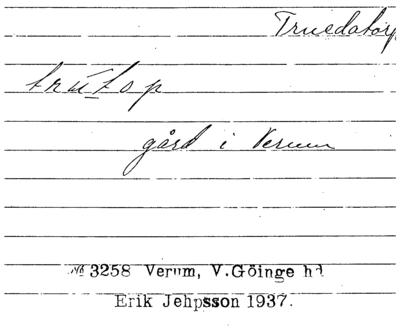 Truedatorp
trutop
gård i Verum
№ 3258 Verum, V.Göinge hd
Erik Jehpsson 1937.